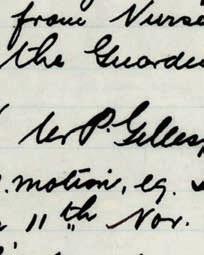 from Nurse
the Guardia
Mr P. Gilles
motion, eg.
11th Nov.